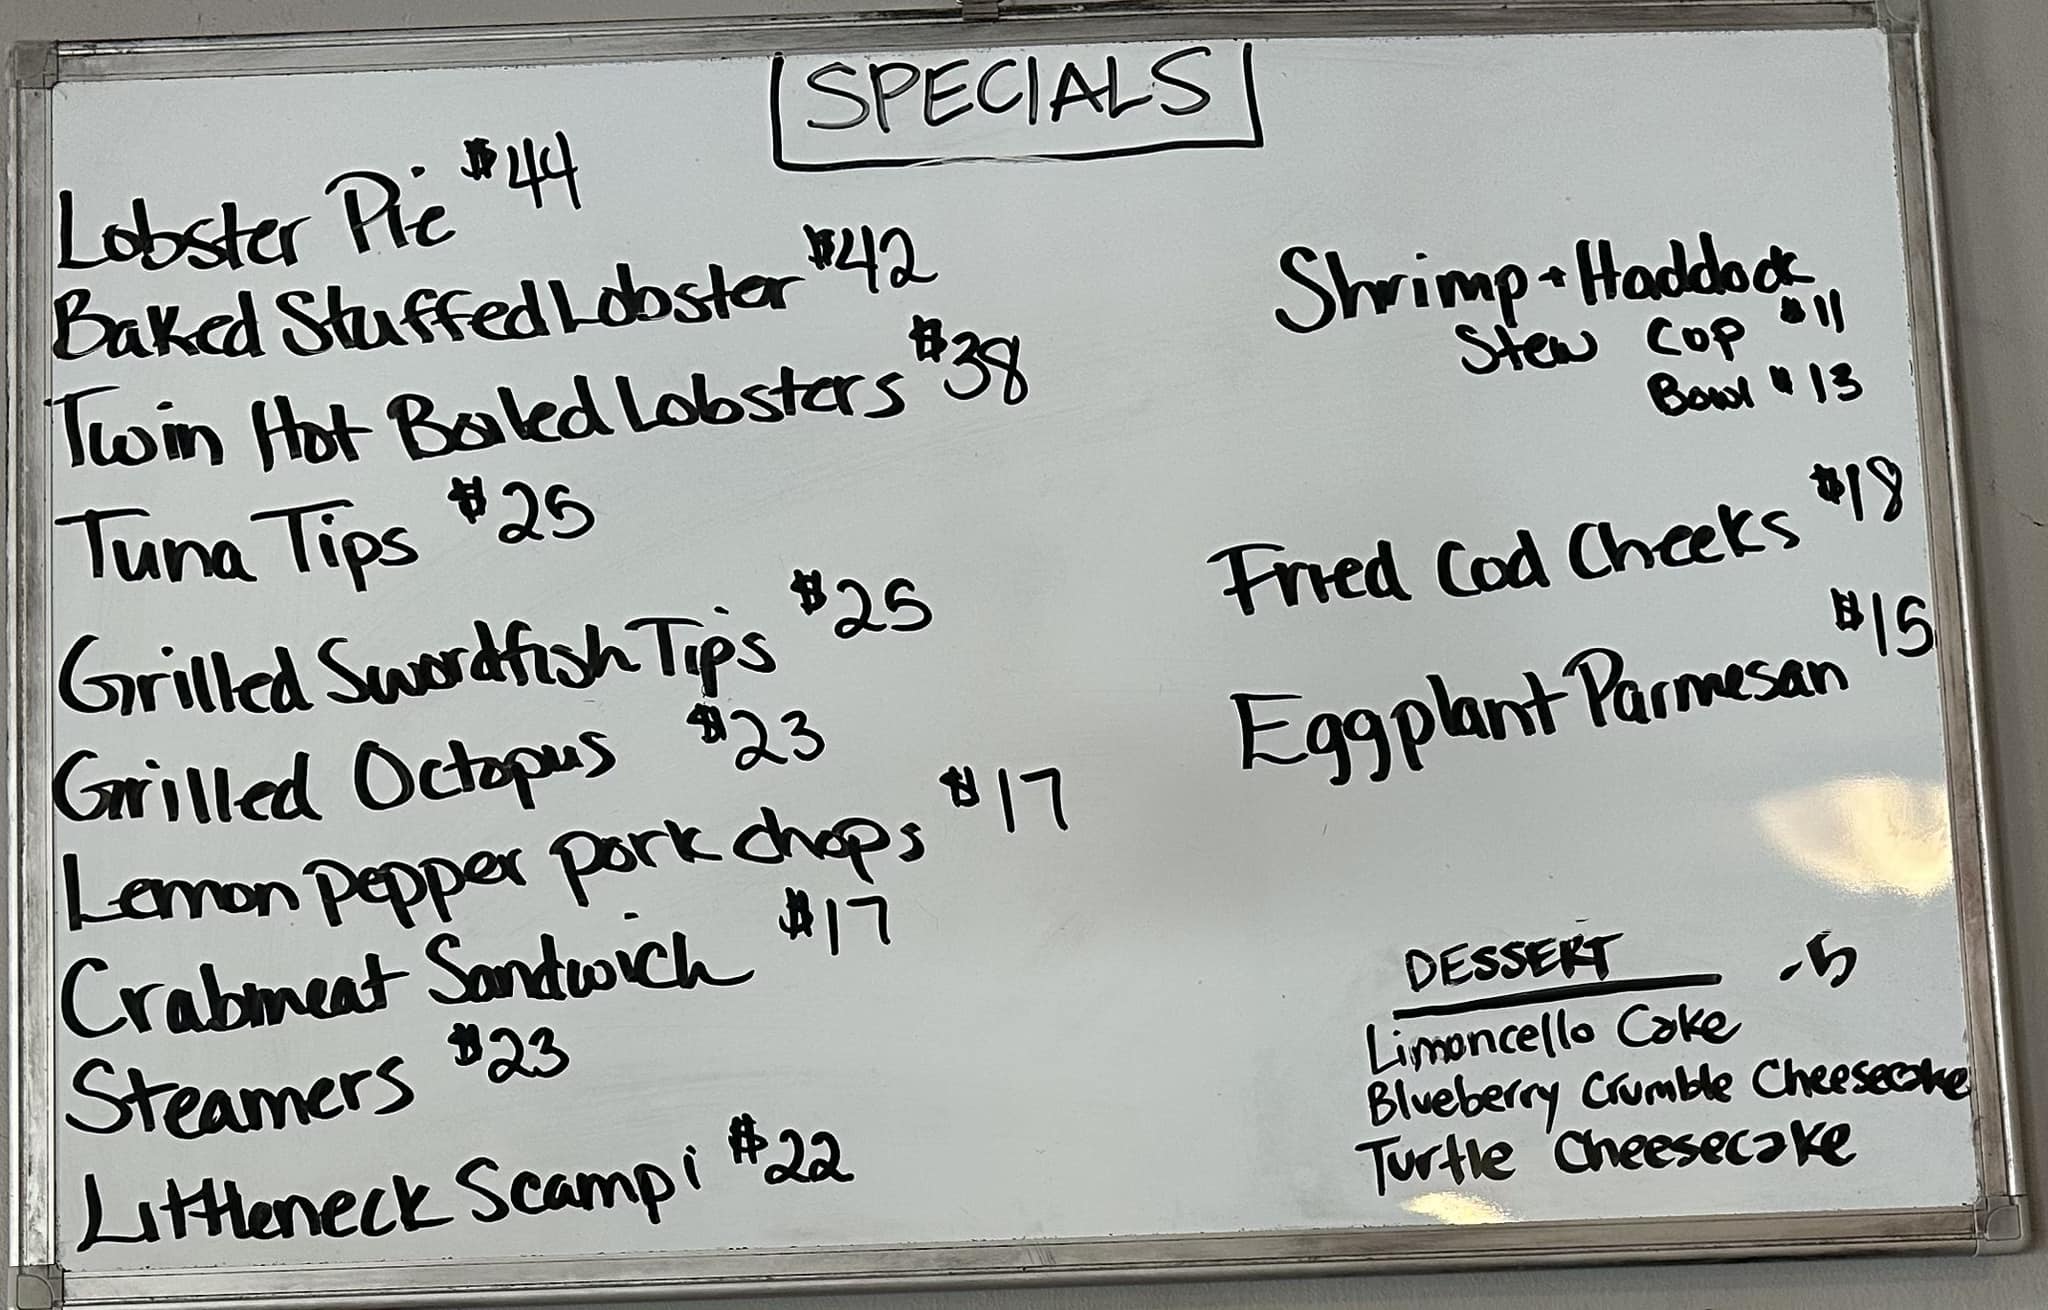 SPECIALS
Lobster Pie $44
Baked Stuffed Lobster $42
Twin Hot Boiled Lobsters $38
Tuna Tips $25
Grilled Swordfish Tips $25
Grilled Octopus $23
Lemon Pepper pork chops $17
Crabmeat Sandwich $17
Steamers $23
Littleneck Scampi $22
Shrimp + Haddock
Stew Cup $11
Bowl $13
Fried Cod Cheeks $18
Eggplant Parmesan $15
DESSERT -5
Limoncello Cake
Blueberry Crumble Cheesecake
Turtle Cheesecake